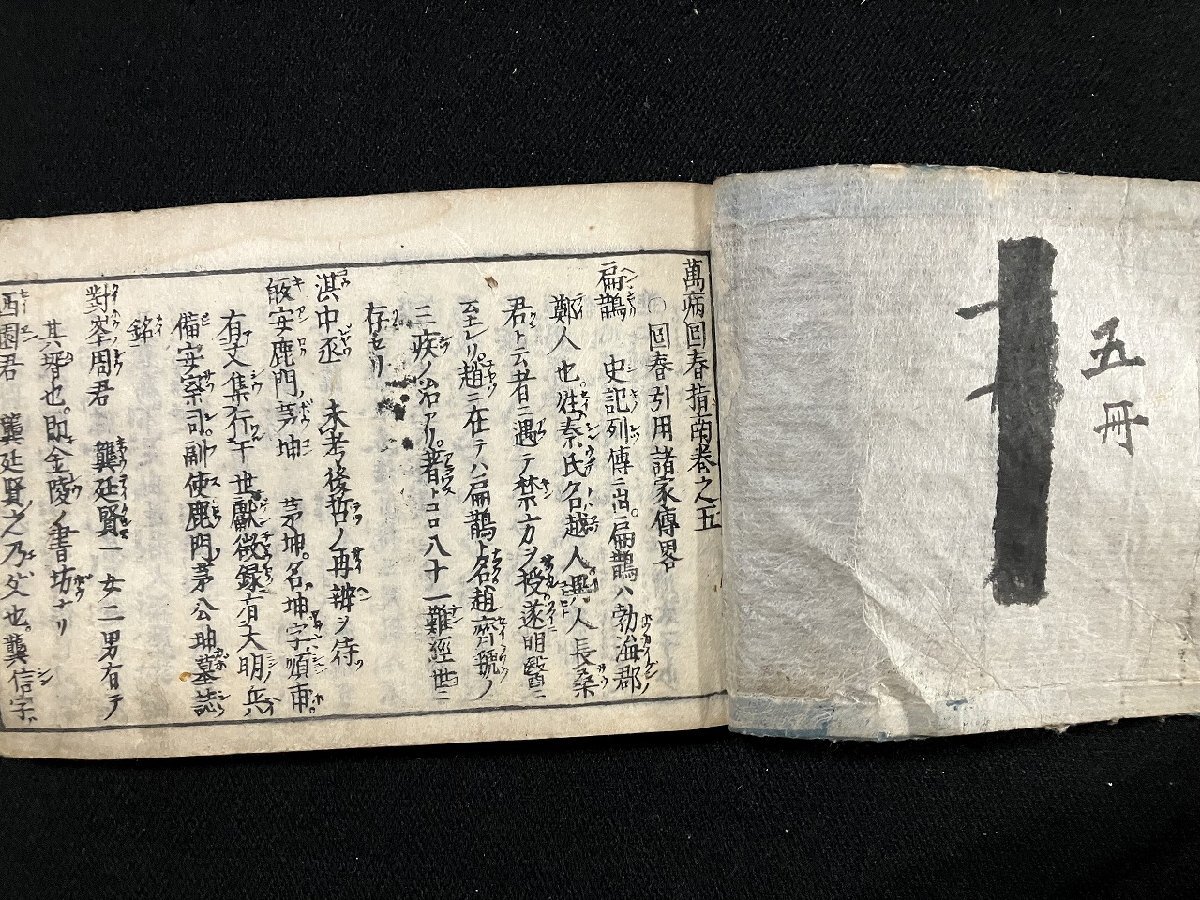 五冊
萬病回春指南卷之五
〇回春引用諸家傳畧
扁鵲 史記列傳ニ出扁鵲ハ勃海郡ノ
鄭人也姓秦氏名越人異人長桑
君ト云者ニ遇テ禁方ヲ授遂明醫ニ
至レリ趙ニ在テハ扁鵲ト名趙齊虢ノ
三疾ノ治アリ著トコロ八十一難經世ニ
存セリ
淇中丞 未考後哲ノ再辨ヲ待
皈安鹿門茅坤 茅坤名坤字順甫
有文集行于世獻徵録有大明兵
備安察司副使鹿門茅公坤墓誌
銘
對峯周君 龔廷賢一女二男有テ
其壻也即金陵ノ書坊ナリ
西園君 龔廷賢之乃父也龔信字